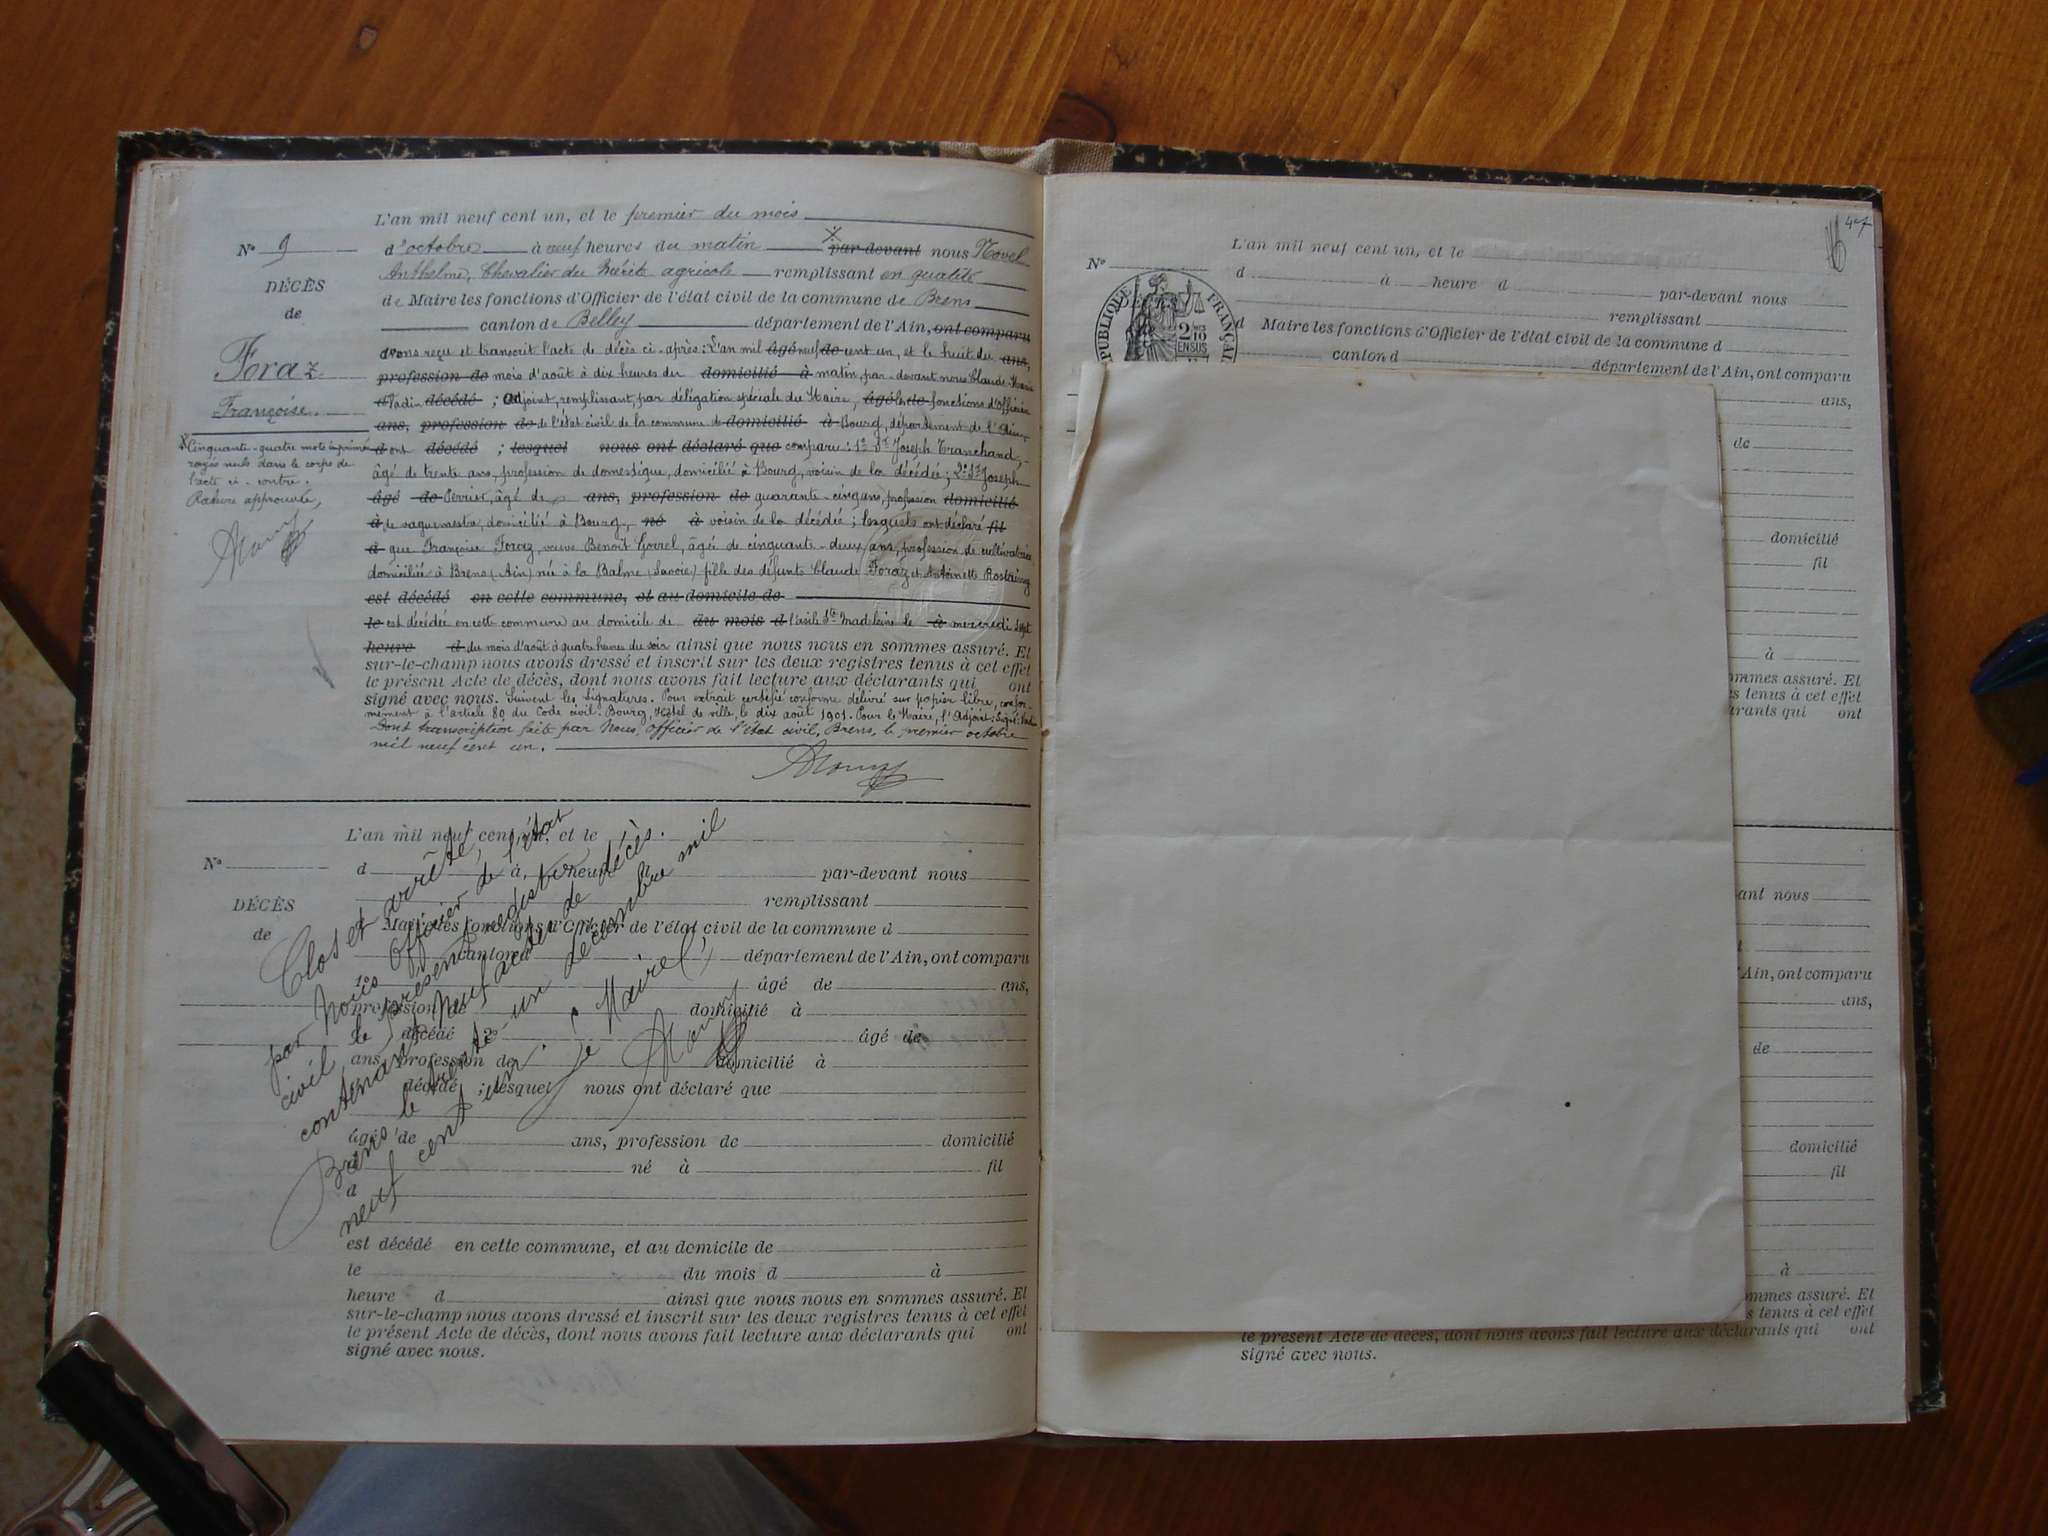 L'an mil neuf cent un, et le premier du mois
N° 9
d'octobre à neuf heures du matin par-devant nous Novel
Anthelme, Chevalier du Mérite agricole remplissant en qualité
DÉCÈS
de Maire les fonctions d'Officier de l'état civil de la commune de Brens
de
canton de Belley département de l'Ain, ont comparu
Foraz
Françoise
avons reçu et transcrit l'acte de décès ci-après: L'an mil âgé neuf de cent un, et le huit du ans,
profession de mois d'août à dix heures du domicilié à matin, par-devant nous Claude Marie
d Vadin décédé ; adjoint, remplissant, par délégation spéciale du Maire, âgé les de fonctions d'Officier
ans, profession de de l'état civil de la commune de domicilié à Bourg, département de l'Ain,
d ont décédé ; lesquel nous ont déclaré que comparu: 1° Sr Joseph Tranchand,
âgé de trente ans, profession de domestique, domicilié à Bourg, voisin de la décédée; 2° Sr Joseph
âgé de Perrier, âgé de ans, profession de quarante-cinq ans, profession domicilié
à de vaguemestre, domicilié à Bourg, né à voisin de la décédée; lesquels ont déclaré fil
d que Françoise Foraz, veuve Benoît Gorrel, âgée de cinquante-deux ans, profession de cultivatrice
domiciliée à Brens (Ain) née à la Balme (Savoie) fille des défunts Claude Foraz et Antoinette Rostaing
est décédé en cette commune, et au domicile de
le est décédée en cette commune au domicile de du mois d l'asile Ste Madeleine le à mercredi sept
heure d du mois d'août à quatre heures du soir ainsi que nous nous en sommes assuré. Et
sur-le-champ nous avons dressé et inscrit sur les deux registres tenus à cet effet
le présent Acte de décès, dont nous avons fait lecture aux déclarants qui ont
signé avec nous. Suivent les signatures. Pour extrait certifié conforme délivré sur papier libre, confor-
mément à l'article 80 du Code civil. Bourg, Hôtel de ville, le dix août 1901. Pour le Maire, l'Adjoint: Signé: Vadin
Dont transcription faite par Nous, Officier de l'état civil, Brens, le premier octobre
mil neuf cent un.
Cinquante-quatre mots imprimés
rayés nuls dans le corps de
l'acte ci-contre.
Rature approuvée,
L'an mil neuf cent un, et le
N°
d à heure par-devant nous
remplissant
DÉCÈS
de
Maire les fonctions d'Officier de l'état civil de la commune d
canton d département de l'Ain, ont comparu
1° âgé de ans,
profession de domicilié à
d décédé 2° âgé de
ans, profession de domicilié à
d décédé ; lesquel nous ont déclaré que
âgé de ans, profession de domicilié
à né à fil
d
est décédé en cette commune, et au domicile de
le du mois d à
heure d ainsi que nous nous en sommes assuré. Et
sur-le-champ nous avons dressé et inscrit sur les deux registres tenus à cet effet
le présent Acte de décès, dont nous avons fait lecture aux déclarants qui ont
signé avec nous.
Clos et arrêté,
par Nous Officier de l'état
civil le présent registre
contenant neuf actes de décès.
Brens, le trente-un décembre mil
neuf cent un.
Le Maire,
47
L'an mil neuf cent un, et le
N°
d à heure d par-devant nous
remplissant
d Maire les fonctions d'Officier de l'état civil de la commune d
canton d département de l'Ain, ont comparu
RÉPUBLIQUE FRANÇAISE
2 10
EN SUS
ans,
de
domicilié
fil
à
mmes assuré. Et
s tenus à cet effet
arants qui ont
ant nous
d
l'Ain, ont comparu
ans,
de
domicilié
fil
à
mmes assuré. Et
s tenus à cet effet
le présent Acte de décès, dont nous avons fait lecture aux déclarants qui ont
signé avec nous.